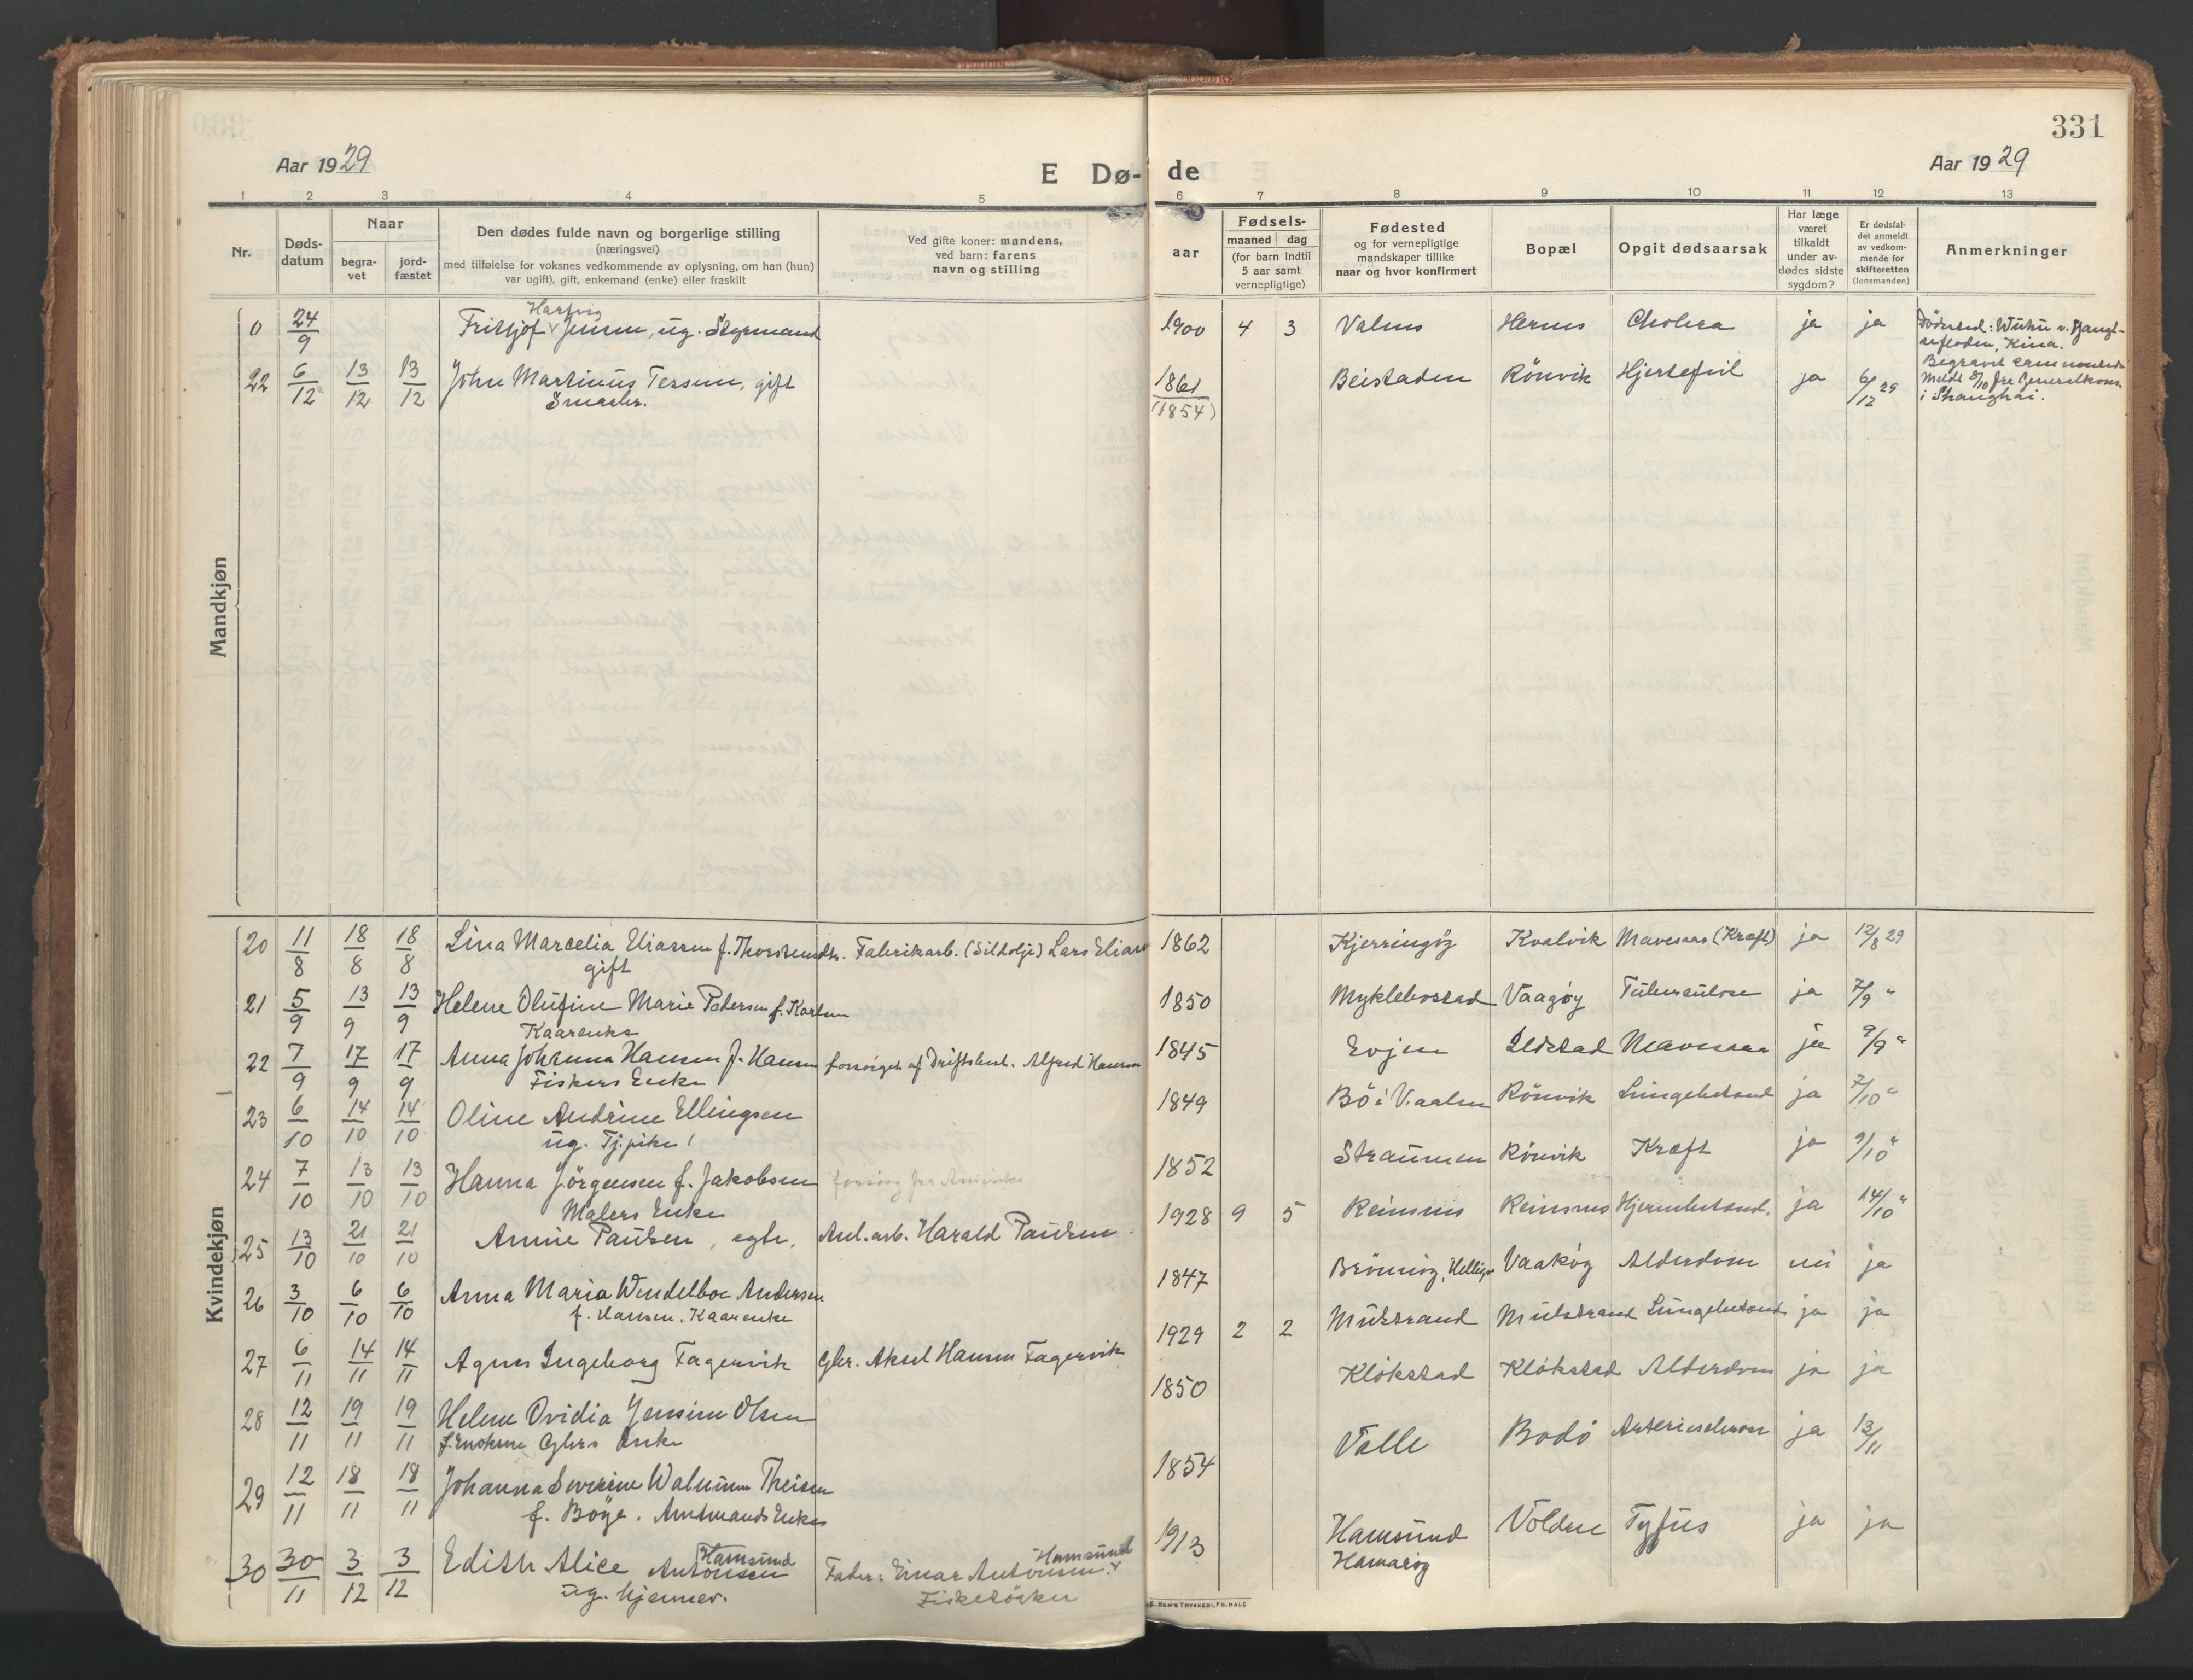 331
Aar 1929
E Dø-
de
Aar 1929
1 2 3 4 5 6 7 8 9 10 11 12 13
Nr.
Døds-
datum
Naar
begra-
vet
jord-
fæstet
Den dødes fulde navn og borgerlige stilling
(næringsvei)
med tilføielse for voksnes vedkommende av oplysning, om han (hun)
var ugift), gift, enkemand (enke) eller fraskilt
Ved gifte koner: mandens,
ved barn: farens
navn og stilling
Fødsels-
aar
maaned dag
(for barn indtil
5 aar samt
vernepligtige)
Fødested
og for vernepligtige
mandskaper tillike
naar og hvor konfirmert
Bopæl
Opgit dødsaarsak
Har læge
været
tilkaldt
under av-
dødes sidste
sygdom?
Er dødsfal-
det anmeldt
av vedkom-
mende for
skifteretten
(lensmanden)
Anmerkninger
Mandkjøn
Hartvig
0 24/9 Fritjof Jensen, ug. Styrmand 1900 4 3 Valnes Hernes Cholera ja ja Dødssted: Wuhu v. Yangt-
sefloden, Kina.
Begravet sammesteds
22 6/12 13/12 13/12 John Martinus Tersen, gift 1861 Beistaden Rönvik Hjertefeil ja 6/12 29 Meldt 8/10 fra Generalkons.
(1854) i Shanghai.
Kvindekjøn
20 11/8 18/8 18/8 Lina Marcelia Eliassen f. Thorstensdtr. Fabrikarb. (Sildolje) Lars Elias 1862 Kjerringøy Kvalvik Mavesaar (Kræft) ja 12/8 29
gift
21 5/9 13/9 13/9 Helene Olufine Marie Petersen f. Karlsen 1850 Myklebostad Vaagøy Tuberculose ja 7/9 "
Kaarenke
22 7/9 17/9 17/9 Anna Johanna Hansen f. Hansen forsörget af Driftsbest. Alfred Hansen 1845 Evjen Seldstad Mavesaar ja 9/9 "
Fiskers Enke
23 6/10 14/10 14/10 Oline Andrine Ellingsen 1849 Bö i V.aalen Rönvik Lungebetænd ja 7/10 "
ug. Tj.pike
24 7/10 13/10 13/10 Hanna Jörgensen f. Jakobsen forsörg fra 1852 Straumen Rönvik Kræft ja 9/10 "
Malers Enke
25 13/10 21/10 21/10 Annie Paulsen, egte, Anl.arb. Harald Paulsen 1928 9 5 Reinsnes Reinsnes Hjernebetænd. ja 14/10 "
26 3/10 6/10 6/10 Anna Maria Wendelboe Andersen 1847 Brönnöy, Vaakøy Alderdom nei ja
f. Hansen. Kaarenke
27 6/11 14/11 14/11 Agnes Ingeborg Fagervik Gbr. Aksel Hansen Fagervik 1929 2 2 Mulstrand Mulstrand Lungebetænd ja ja
28 12/11 19/11 19/11 Helene Ovidia Jensine Olsen 1850 Klökstad Klökstad Alderdom ja ja
f. Enoksen Gbrs Enke
29 12/11 18/11 18/11 Johanna Severine Walnum Theisen 1854 Valle Bodö ja 13/11
f. Böye. Amtmands Enke
30 30/11 3/12 3/12 Edith Alice Antonsen Hamsund Fader: Einar Antonsen Hamsund 1913 Hamsund Volden Tyfus ja ja
ug. hjemmev. Fiskesöker Hamaröy
E. SEM'S TRYKKERI, FR.HALD